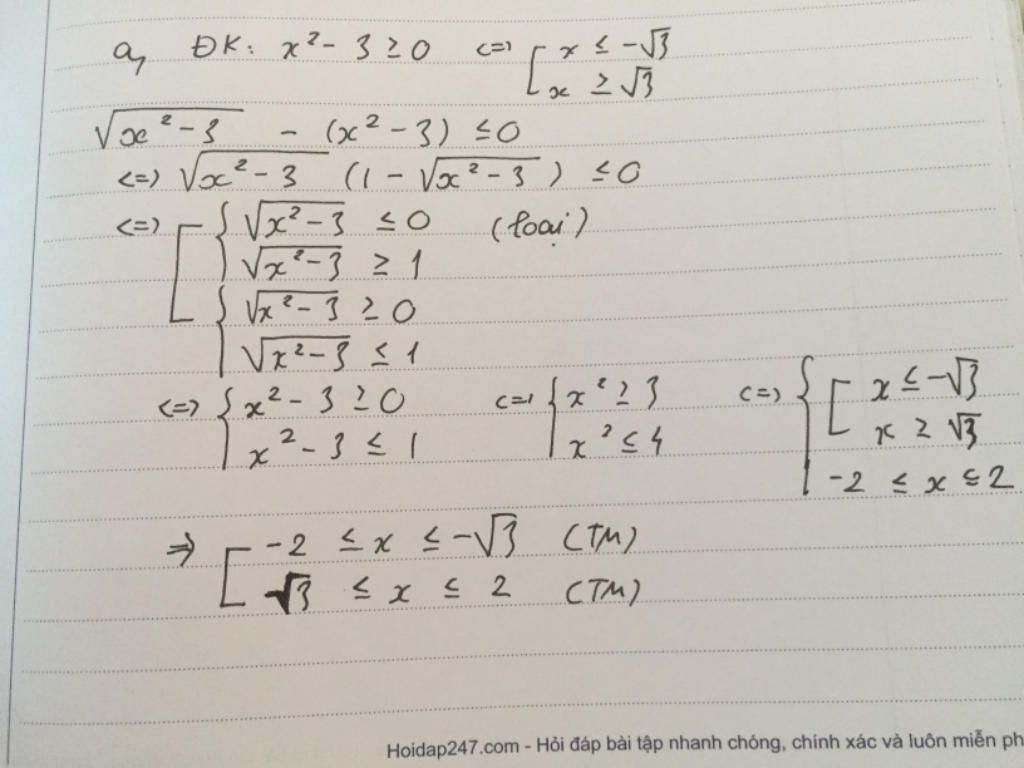 a, ĐK: x² - 3 ≥ 0 <=> [ x ≤ -√3
x ≥ √3
√(x² - 3) - (x² - 3) ≤ 0
<=> √(x² - 3) (1 - √(x² - 3)) ≤ 0
<=> [ { √(x² - 3) ≤ 0 (loại)
√(x² - 3) ≥ 1
{ √(x² - 3) ≥ 0
√(x² - 3) ≤ 1
<=> { x² - 3 ≥ 0 <=> { x² ≥ 3 <=> { [ x ≤ -√3
x² - 3 ≤ 1 x² ≤ 4 x ≥ √3
-2 ≤ x ≤ 2
=> [ -2 ≤ x ≤ -√3 (TM)
√3 ≤ x ≤ 2 (TM)
Hoidap247.com - Hỏi đáp bài tập nhanh chóng, chính xác và luôn miễn ph